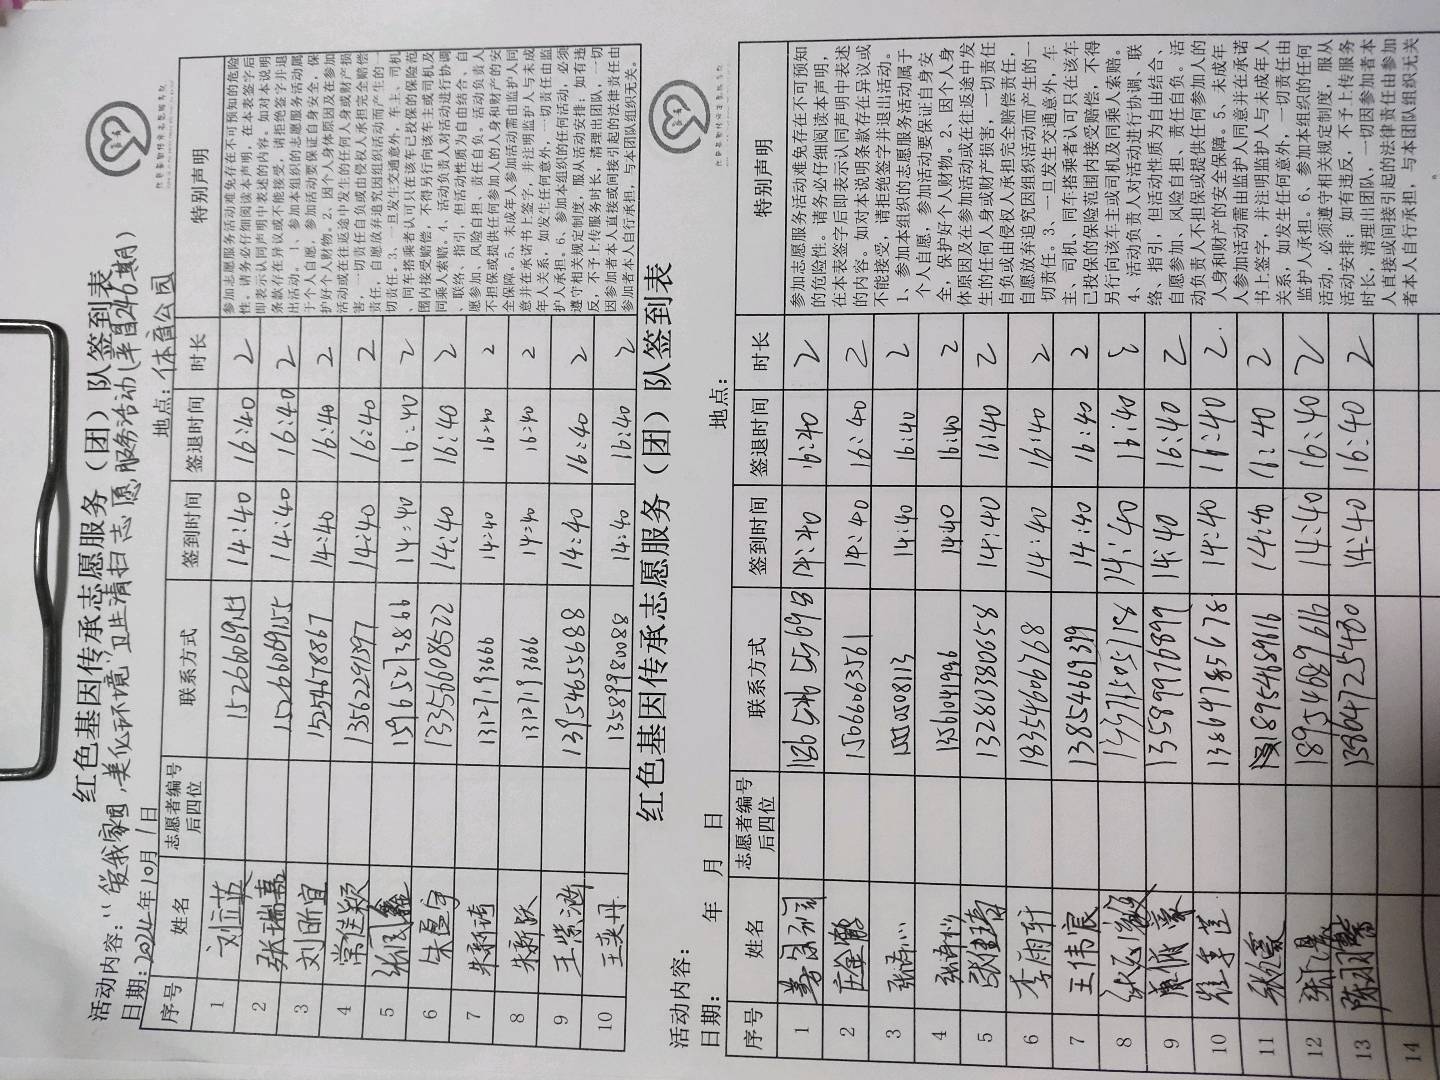 红色基因传承志愿服务（团）队签到表
活动内容：“爱我家园，美化环境”卫生清扫志愿服务活动(莱昌246期)
日期：2024年10月1日 地点：体育公园
序号 姓名 志愿者编号后四位 联系方式 签到时间 签退时间 时长 特别声明
1 刘立英 14:40 16:40 2
2 张瑞嘉 15266069155 14:40 16:40 2
3 刘昕宜 15254678867 14:40 16:40 2
4 常佳颖 13562297397 14:40 16:40 2
5 15965273866 14:40 16:40 2
6 朱星宇 13356608522 14:40 16:40 2
7 朱新琦 13127193666 14:40 16:40 2
8 朱新跃 13127193666 14:40 16:40 2
9 王紫涵 13954655688 14:40 16:40 2
10 王奕丹 13589980088 14:40 16:40 2
参加志愿服务活动难免存在不可预知的危险性。请务必仔细阅读本声明，在本表签字后即表示认同声明中表述的内容。如对本说明条款存在异议或不能接受，请拒绝签字并退出活动。1、参加本组织的志愿服务活动属于个人自愿，参加活动要保证自身安全，保护好个人财物。2、因个人身体原因及在参加活动或在往返途中发生的任何人身或财产损害，一切责任自负或由侵权人承担完全赔偿责任，自愿放弃追究因组织活动而产生的一切责任。3、一旦发生交通意外，车主、司机、同车搭乘者认可只在该车已投保的保险范围内接受赔偿，不得另行向该车主或司机及同乘人索赔。4、活动负责人对活动进行协调、联络、指引，但活动性质为自由结合、自愿参加、风险自担、责任自负。活动负责人不担保或提供任何参加人的人身和财产的安全保障。5、未成年人参加活动需由监护人同意并在承诺书上签字，并注明监护人与未成年人关系，如发生任何意外，一切责任由监护人承担。6、参加本组织的任何活动，必须遵守相关规定制度，服从活动安排；如有违反，不予上传服务时长，清理出团队，一切因参加者本人直接或间接引起的法律责任由参加者本人自行承担，与本团队组织无关。
红色基因传承志愿服务（团）队签到表
活动内容：
日期： 年 月 日 地点：
序号 姓名 志愿者编号后四位 联系方式 签到时间 签退时间 时长 特别声明
1 14:40 16:40 2
2 15066063561 14:40 16:40 2
3 14:40 16:40 2
4 14:40 16:40 2
5 13280380658 14:40 16:40 2
6 李雨轩 18354606768 14:40 16:40 2
7 王伟宸 13854669399 14:40 16:40 2
8 14:40 16:40 2
9 13589976899 14:40 16:40 2
10 13864785678 14:40 16:40 2
11 18954689616 14:40 16:40 2
12 18954689616 14:40 16:40 2
13 13864725480 14:40 16:40 2
14
参加志愿服务活动难免存在不可预知的危险性。请务必仔细阅读本声明，在本表签字后即表示认同声明中表述的内容。如对本说明条款存在异议或不能接受，请拒绝签字并退出活动。
1、参加本组织的志愿服务活动属于个人自愿，参加活动要保证自身安全，保护好个人财物。2、因个人身体原因及在参加活动或在往返途中发生的任何人身或财产损害，一切责任自负或由侵权人承担完全赔偿责任，自愿放弃追究因组织活动而产生的一切责任。3、一旦发生交通意外，车主、司机、同车搭乘者认可只在该车已投保的保险范围内接受赔偿，不得另行向该车主或司机及同乘人索赔。
4、活动负责人对活动进行协调、联络、指引，但活动性质为自由结合、自愿参加、风险自担、责任自负。活动负责人不担保或提供任何参加人的人身和财产的安全保障。5、未成年人参加活动需由监护人同意并在承诺书上签字，并注明监护人与未成年人关系，如发生任何意外，一切责任由监护人承担。6、参加本组织的任何活动，必须遵守相关规定制度，服从活动安排；如有违反，不予上传服务时长，清理出团队，一切因参加者本人直接或间接引起的法律责任由参加者本人自行承担，与本团队组织无关